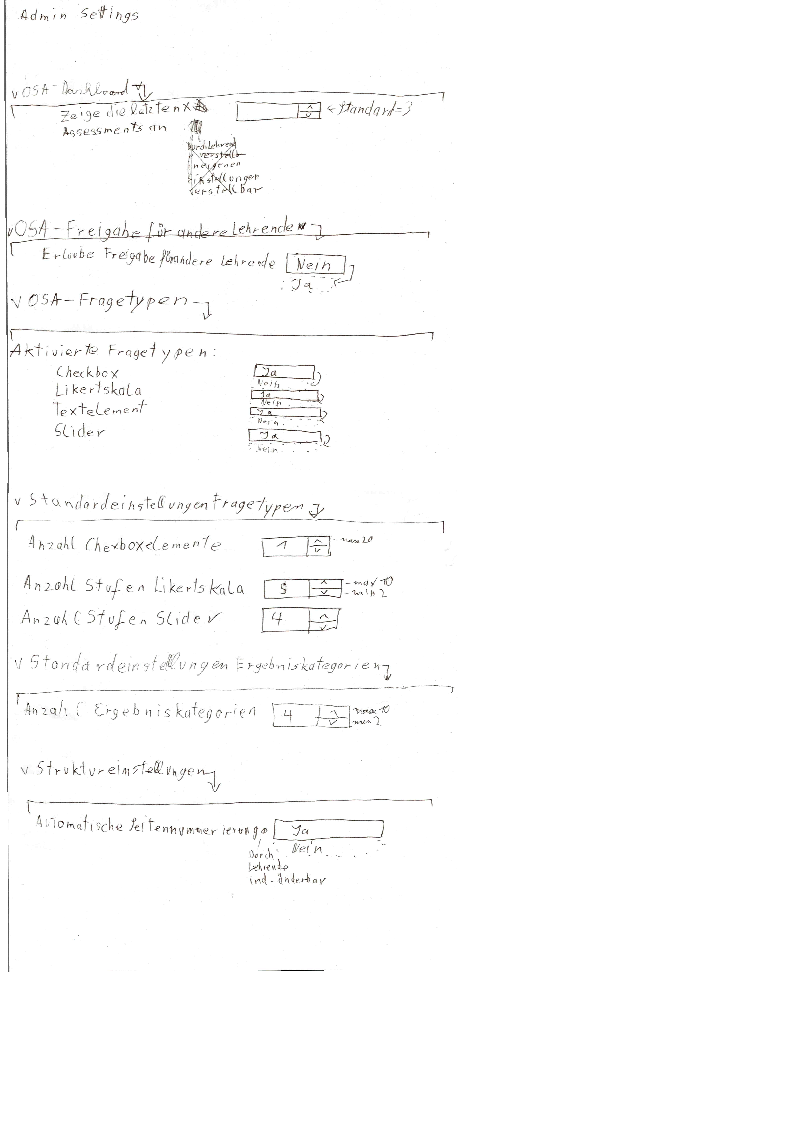 Admin Settings
v OSA-Dashboard
Zeige die letzten X
Assessments an
← Standard=3
verstellb
in eigenen
Einstellungen
verstellbar
v OSA-Freigabe für andere Lehrende
Erlaube Freigabe für andere Lehrende Nein
Ja
v OSA-Fragetypen
Aktivierte Fragetypen:
Checkbox Ja
Nein
Likertskala Ja
Nein
Textelement Ja
Nein
Slider Ja
Nein
v Standardeinstellungen Fragetypen
Anzahl Chexboxelemente 1 - max 20
Anzahl Stufen Likertskala 5 - max 10
- min 2
Anzahl Stufen Slider 4
v Standardeinstellungen Ergebniskategorien
Anzahl Ergebniskategorien 4 max 10
min 2
v Struktureinstellungen
Automatische Seitennummerierung Ja
Nein
Durch
Lehrende
ind. änderbar